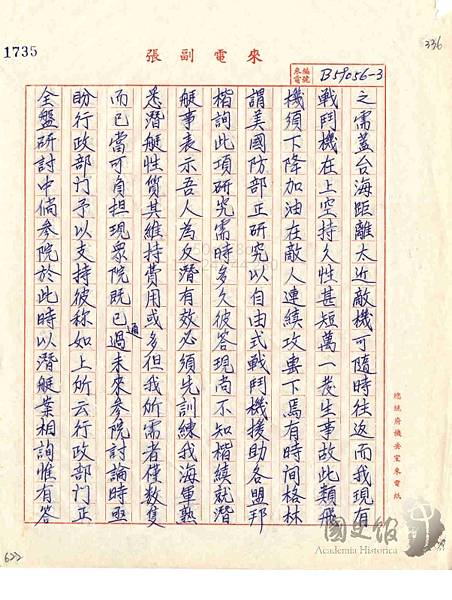 1735
336
張副電來
來電編號 B59056-3
之需蓋台海距離太近敵機可隨時往返而我現有
戰鬥機在上空持久性甚短萬一發生事故此類飛
機須下降加油在敵人連續攻擊下焉有時間格林
謂美國防部正研究以自由式戰鬥機援助各盟邦
楷詢此項研究需時多久彼答現尚不知楷續就潛
艇事表示吾人為反潛有效必須先訓練我海軍熟
悉潛艇性質其維持費用或多但我所需者僅數隻
而已當可負担現衆院既已通過未來參院討論時亟
盼行政部门予以支持彼称如上所云行政部门正
全盤研討中倘參院於此時以潛艇案相詢惟有答
總統府機要室來電紙
國史館
Academia Historica